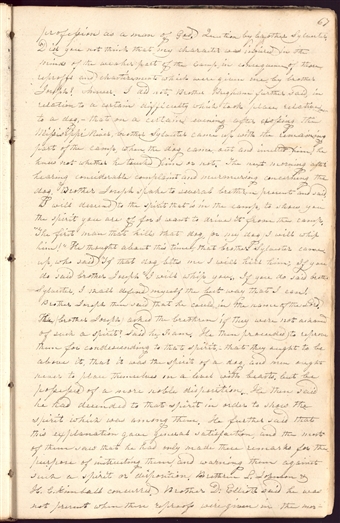 67
profession as a man of God. Question by brother Sylvester,
Did you not think that my character was injured in the
minds of the weaker part of the Camp, in consequence of those
reproofs and chastisements which were given me by brother
Joseph? Answer, I did not. Brother Brigham further said in
relation to a certain difficulty which took place relative
to a dog, that on a certain evening after crossing the
Mississippi River, brother Sylvester came up with the remaining
part of the camp, when the dog came out and insulted him, he
knew not whether he turned from or not, The next morning after
hearing considerable complaint and murmuring concerning the
dog, Brother Joseph spake to several brethren present and said
I will descend to the spirit that is in the camp, to show you
the spirit you are of for I want to drive it from the camp.
"The first man that kills that dog, or my dog I will whip
him!" He thought about this time, that brother Sylvester came
up, who said If that dog bites me I will kill him, If you
do said brother Joseph I will whip you. If you do said brother
Sylvester, I shall defend myself the best way that I can!
Brother Joseph then said that he could in the name of the Lord.
The brother Joseph asked the brethren if they were not ashamed
of such a spirit? said he, I am. He then proceeded to reprove
them for condescending to that spirit, that they ought to be
above it, that it was the spirit of a dog, and men ought
never to place themselves on a level with beasts, but be
possessed of a more noble disposition. He then said
he had descended to that spirit in order to show the
spirit which was among them. He further said that
this explanation gave general satisfaction, and the most
of them saw that he had only made these remarks for the
purpose of instructing them, and warning them against
such a spirit or disposition. Brethren L. Johnson &
H. C. Kimball concurred, Brother D. Elliott said he was
not present when these reproofs were given in the mo-